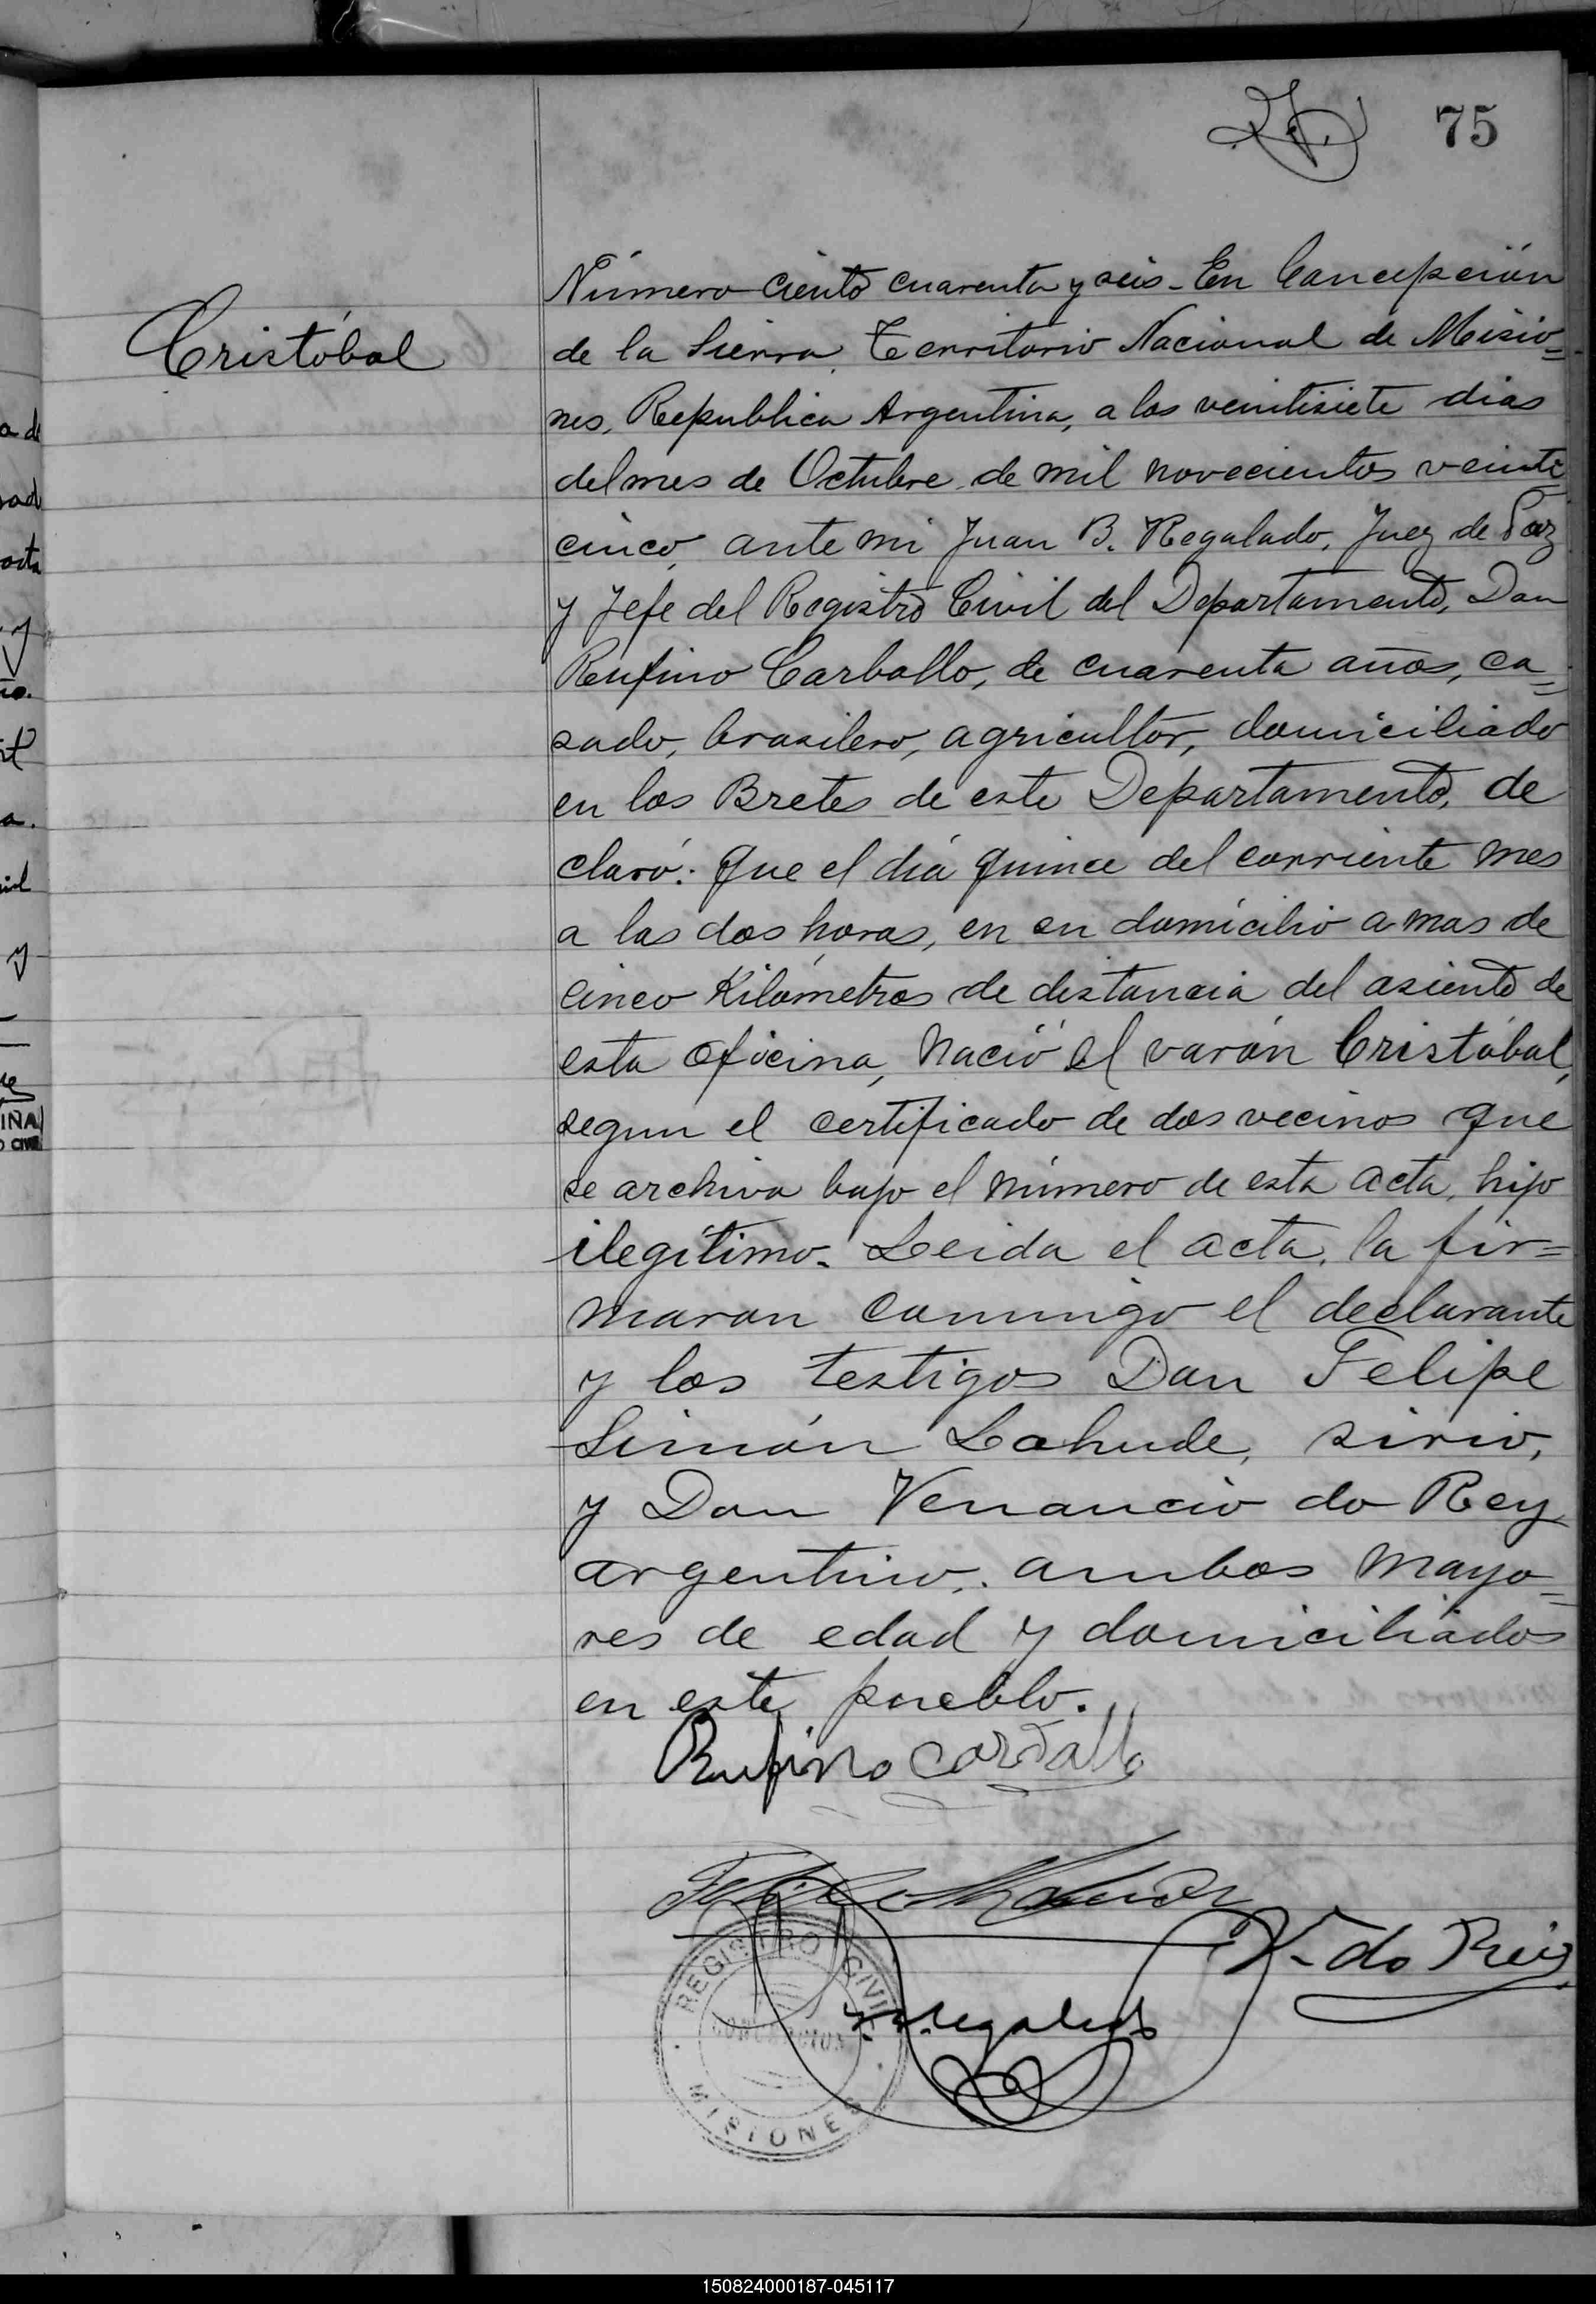 75
Cristóbal
Número ciento cuarenta y seis - En Concepción
de la Sierra, Territorio Nacional de Misio=
nes, Republica Argentina, a los veintisiete dias
del mes de Octubre de mil novecientos veinte
cinco, ante mi Juan B. Regalado, Juez de Paz
y Jefe del Registro Civil del Departamento, Don
Rufino Carballo, de cuarenta años, ca=
sado, brasilero, agricultor, domiciliado
en los Bretes de este Departamento, de
claró: Que el día quince del corriente mes
a las dos horas, en su domicilio a mas de
cinco Kilómetros de distancia del asiento de
esta oficina, nació el varón Cristóbal,
segun el certificado de dos vecinos que
se archiva bajo el número de esta acta, hijo
ilegítimo. Leida el acta, la fir=
maron conmigo el declarante
y los testigos Don Felipe
Simón Lahude, sirio,
y Don Venancio do Rey
argentino, ambos mayo=
res de edad y domiciliados
en este pueblo.
Rufino Carballo
V. do Rey
REGISTRO CIVIL
CONCEPCION
MISIONES
a de
y
a.
y
INA
O CIVIL
150824000187-045117